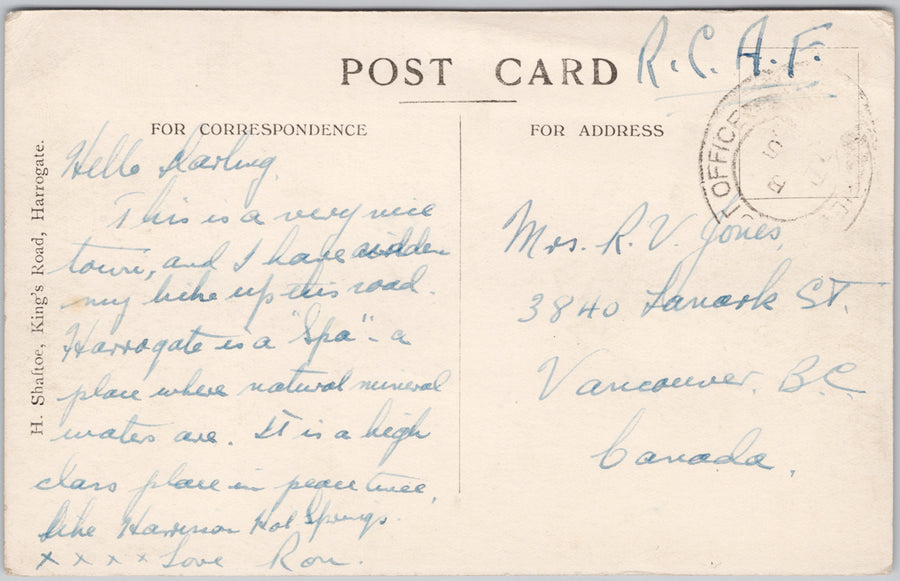 POST CARD
R.C.A.F.
FOR CORRESPONDENCE
FOR ADDRESS
H. Shaftoe, King's Road, Harrogate.
OFFICE
Hello Darling,
This is a very nice
town, and I have ridden
my bike up this road.
Harrogate is a "Spa" - a
place where natural mineral
waters are. It is a high
class place in peace time,
like Harrison Hot Springs.
x x x x Love Ron.
Mrs. R. V. Jones,
3840 Lanark St.
Vancouver, B.C.
Canada,